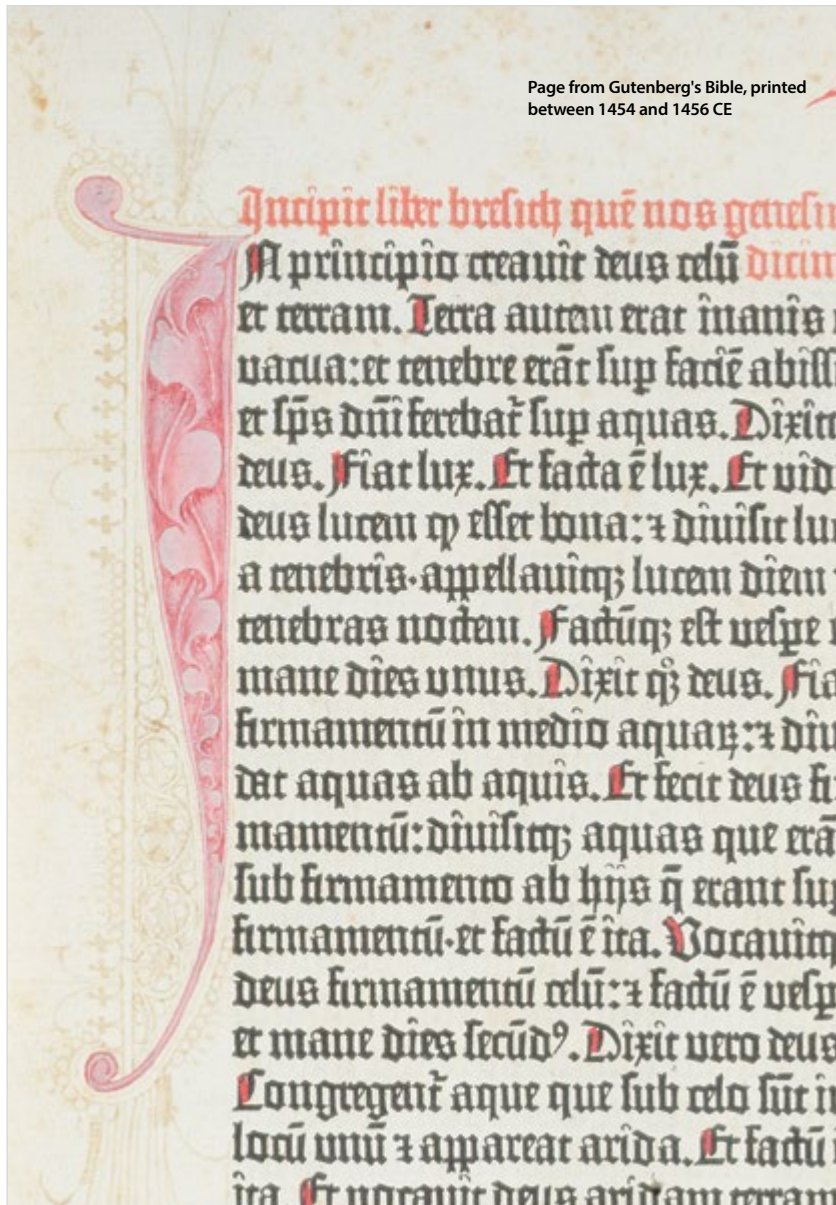 Page from Gutenberg's Bible, printed
between 1454 and 1456 CE
Incipit liber bresith quē nos genesin
IN principio creauit deus celū dicim
et terram. Terra autem erat inanis
uacua: et tenebre erāt sup faciē abissi
et sp̄s dn̄i ferebat᷑ sup aquas. Dixitq
deus. Fiat lux. Et facta ē lux. Et vid
deus lucem ꝙ esset bona: ⁊ diuisit lu
a tenebris· appellauitqꝫ lucem diem
tenebras noctem. Factūqꝫ est uespe
mane dies vnus. Dixit qꝫ deus. Fia
firmamentū in medio aquaꝝ: ⁊ diu
dat aquas ab aquis. Et fecit deus fir
mamentū: diuisitqꝫ aquas que erā
sub firmamento ab hijs q̄ erant sup
firmamentū· et factū ē ita. Vocauitq
deus firmamentū celū: ⁊ factū ē uesp
et mane dies secūdꝰ. Dixit vero deus
Congregent᷑ aque que sub celo sūt in
locū vnū ⁊ appareat arida. Et factū
ita. Et vocauit deus aridam terram